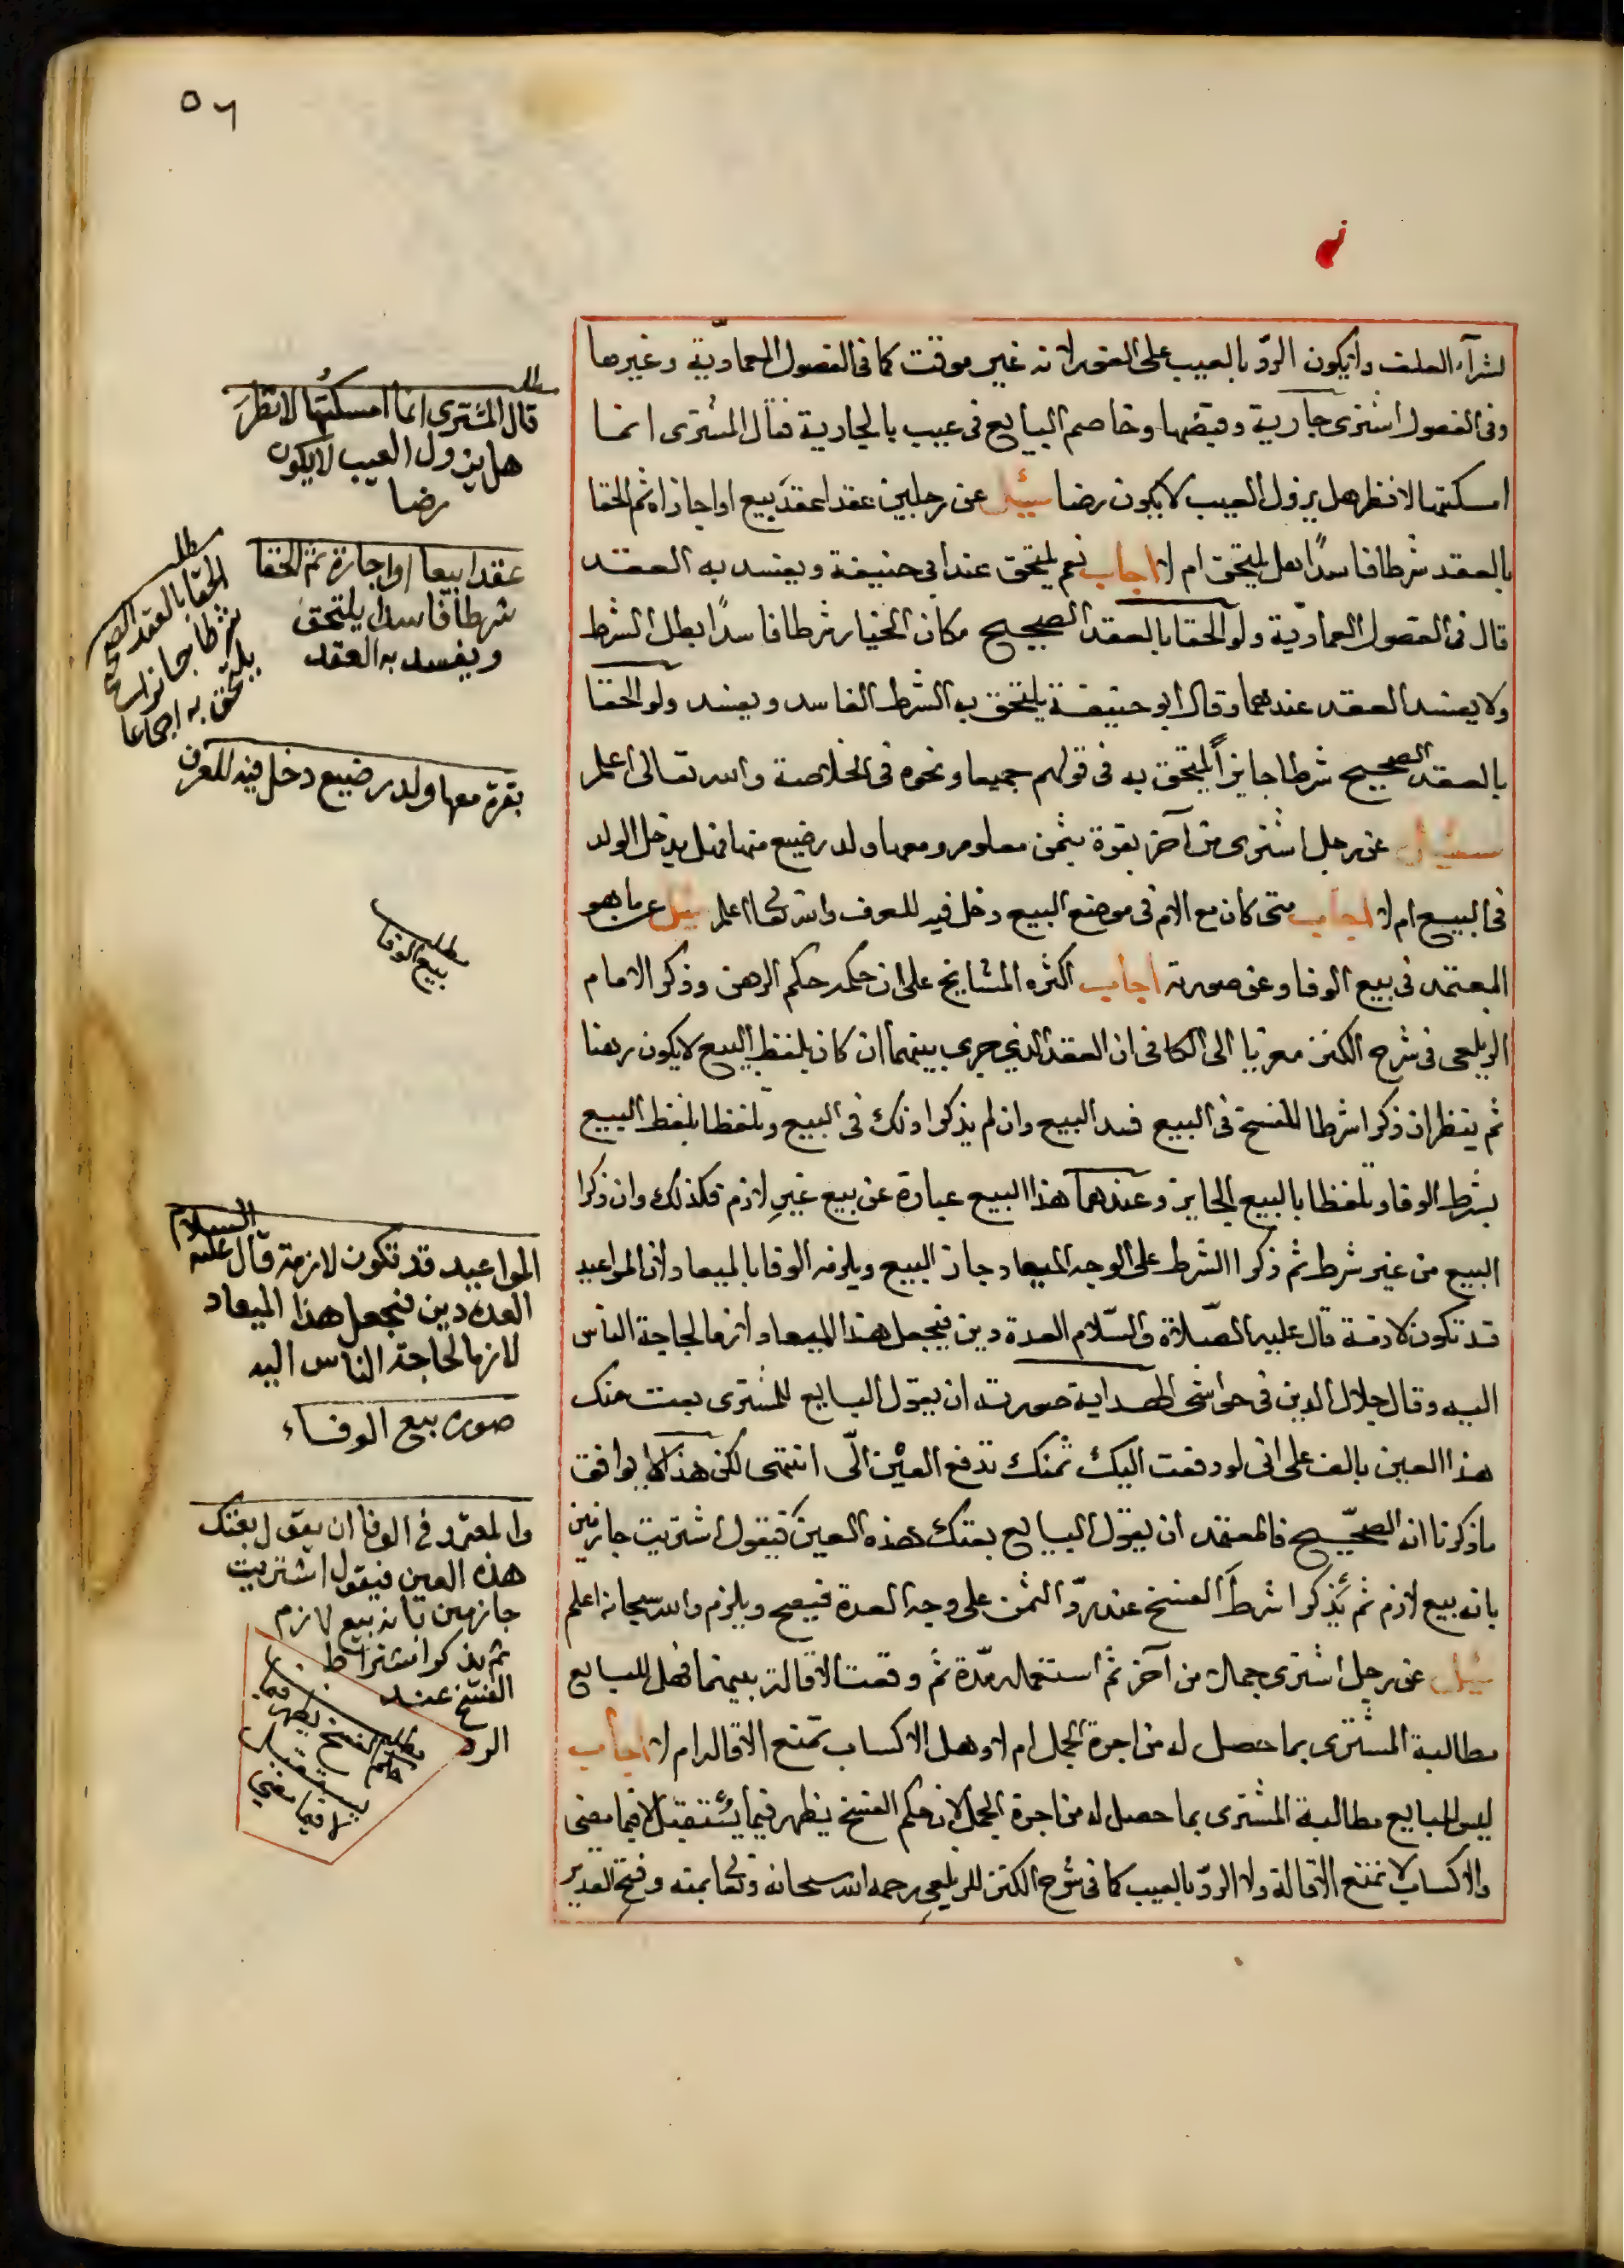 ٥٦
لشرآء العلف ولا يكون الردّ بالعيب على الفور لانه غير موقت كما فى الفصول العماديّة وغيرها
وفى الفصول اشترى جارية وقبضها وخاصم البايع فى عيب بالجارية فقال المشترى انما
امسكتها لانظر هل يزول العيب لا يكون رضا سئيل عن رجلين عقدا عقد بيع او اجازاه ثم الحقا
بالعقد شرطا فاسدًا هل يلتحق ام لا اجاب نعم يلتحق عند ابى حنيفة ويفسد به العقد
قال فى الفصول العماديّة ولو الحقا بالعقد الصحيح مكان الخيار شرطا فاسدًا بطل الشرط
ولا يفسد العقد عندهما وقال ابو حنيفة يلتحق به الشرط الفاسد ويفسد ولو الحقا
بالعقد الصحيح شرطا جايزاً يلتحق به فى قولهم جميعا ونحوه فى الخلاصة والله تعالى اعلم
سئيل عن رجل اشترى من آخر بقرة بثمن معلوم ومعها ولد رضيع منها فهل يدخل الولد
فى البيع ام لا اجاب متى كان مع الام فى موضع البيع دخل فيه للعرف والله تعالى اعلم سئيل عن ما هو
المعتمد فى بيع الوفا وعن صورته اجاب اكثره المشايخ على ان حكمه حكم الرهن وذكر الامام
الزيلعى فى شرح الكنز معزيا الى الكافى ان العقد الذي جرى بينهما ان كان بلفظ البيع لا يكون رهنا
ثم ينظر ان ذكرا شرطا للفسخ فى البيع فسد البيع وان لم يذكرا ذلك فى البيع وتلفظا بلفظ البيع
بشرط الوفا وتلفظا بالبيع الجايز وعندهما هذا البيع عبارة عن بيع غير لازم فكذلك وان ذكرا
البيع من غير شرط ثم ذكرا الشرط على الوجه الميعاد جاز البيع ويلزمه الوفا بالميعاد لان المواعيد
قد تكون لازمة قال عليه الصّلاة والسّلام العدة دين فيجعل هذا الميعاد لازما لحاجة الناس
اليه وقال جلال الدين فى حواشى الهداية صورته ان يقول البايع للمشترى بعت منك
هذا العين بالف على انى لو دفعت اليك ثمنك تدفع العين الىّ انتهى لكن هذا لا يوافق
ما ذكرنا انه الصحّيح فالمعتمد ان يقول البايع بعتك هذه العين فيقول اشتريت جازمين
بانه بيع لازم ثم يَذكرا شرط الفسخ عند ردّ الثمن على وجه العدة فيصح ويلزم والله سبحانه اعلم
سئيل عن رجل اشترى جمالا من آخر ثم استعمله مدّة ثم وقعت الاقالة بينهما فهل للبايع
مطالبة المشترى بما حصل له من اجرة الجمل ام لا وهل الاكساب تمنع الاقاله ام لا اجاب
ليس للبايع مطالبة المشترى بما حصل له من اجرة الجمل لان حكم الفسخ يظهر فيما يستقبل لا فيما مضى
والاكساب لا تمنع الاقالة ولا الردّ بالعيب كما فى شرح الكنز للزيلعى رحمه الله سبحانه وتعالى بمنه وفتح القدير
مطلب
قال المشترى انما امسكتُها لانظرَ
هل يزول العيب لا يكون
رضا
عقدا بيعا او اجارة ثم الحقا
شرطا فاسدا يلتحق
ويفسد به العقد
مطلب
الحقا بالعقد الصحيح
شرطا جائزا
يلتحق به اجماعا
بقرة معها ولد رضيع دخل فيه للعرف
مطلب
بيع الوفا
المواعيد قد تكون لازمة قال عليه السلام
العدة دين فنجعل هذا الميعاد
لازما لحاجة الناس اليه
صورة بيع الوفاء
والمعتمد فى الوفا ان يقول بعتك
هذه العين فيقول اشتريت
جازمين بانه بيع لازم
ثم يذكرا اشتراط
الفسخ عند
الرد
مطلب
حكم الفسخ يظهر فيما
يستقبل
لا فيما مضى